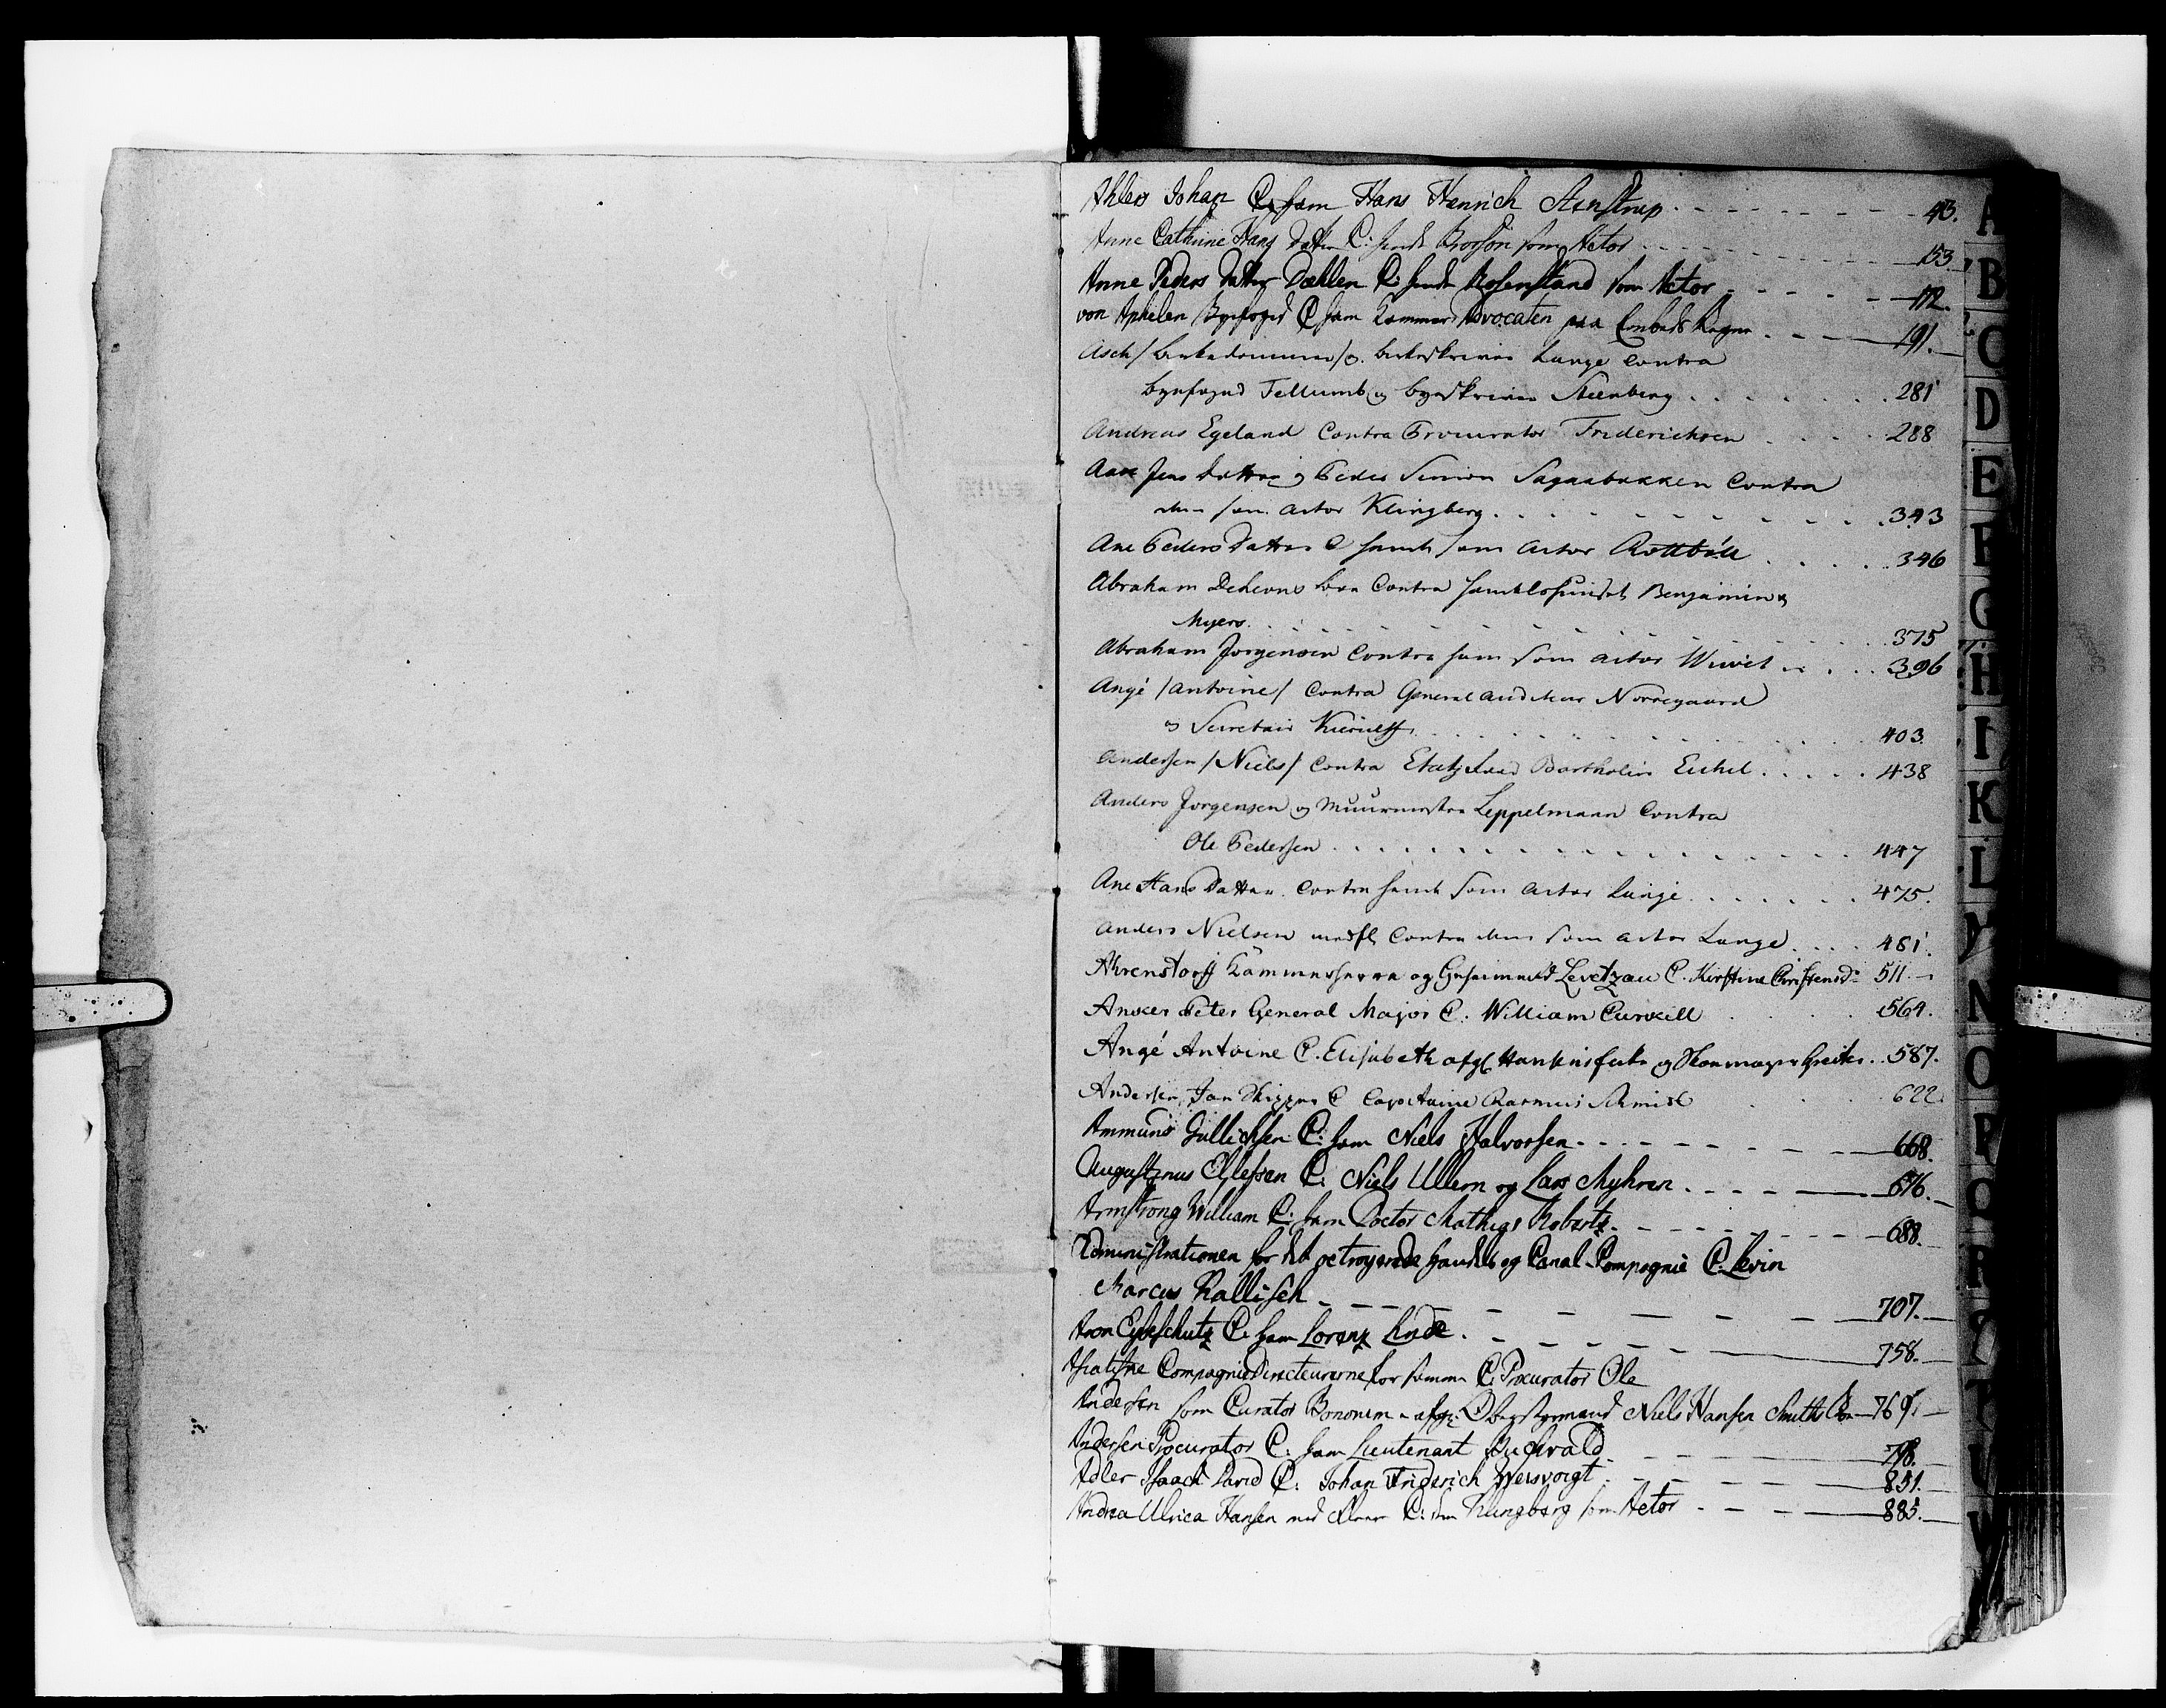 Ahlers Johan C: ham Hans Henrich Stenstrup 43.
Anne Cathrine Hans Datter C: hende Borsön som Actor 153
Anne Peders Datter Dahlen C: hende Rosenstand som Actor 172.
von Aphelen Byefoged C ham Kammer Advocaten paa Embeds Vegne 191.
Asch / birkedommer / og birkeskriver Lunge contra
byefoged Tellumb og byeskriver Steenberg 281
Andreas Egeland Contra Procurator Friderichsen 288
Ane Jens Datter og Peder Simon Sagaabakken Contra
dem som actor Klingberg 343
Ane Peders Datter C hende som actor Rottböll 346
Abraham Contra Benjamin
Myers 375
Abraham Jorgensen Contra ham som actor Wivet 396
Angé / Antoine / Contra General auditeur Norregaard
og Secretair Kierulff 403.
Andersen / Niels / Contra Etatzraad Bartholin Eichel 438
Anders Jorgensen og Muurmester Leppelmann Contra
Ole Pedersen 447
Ane Hans Datter Contra hende som actor Lunge 475.
Anders Nielsen medfl. Contra dem som actor Lange 481.
Ahrenstorff Kammerherre og Geheimeraad Levetzau C. Kirstine Christensd. 511.
Ansker Peter General Major C. William Curkill 564.
Angé Antoine C. Elisabeth afg. og Skomager Greites 587.
Andersen, Jan Skipper C Capitaine Rasmus Schmidt 622.
Ammund Gullichsen C: ham Niels Halvorsen 668.
Augustinus Ellefsen C: Niels Ullern og Lars Myhren 676.
Armstrong William C: ham Doctor Mathias Robertz 688.
Administrationen for det octroyerede Handels og Canal-Compagnie C. Levin
Marcus Kallisch 707.
Aron Eybeschutz C: ham Lorenz Linde 758.
Asiatiske Compagnie Directeurerne for samme C: Procurator Ole
Andersen som Curator Bonorum i afg: Oberstyrmand Niels Hansen Smith Boe 769.
Andersen Procurator C: ham Lieutenant Buchwald 798.
Adler Isaach David C: Johan Friderich Weisvoigt 851.
Andrea Ulrica Hansen med Fleere C: dem Klingberg som Actor 885.
A
B
C
D
E
F
G
H
I
K
L
M
N
O
P
Q
R
S
T
U
W